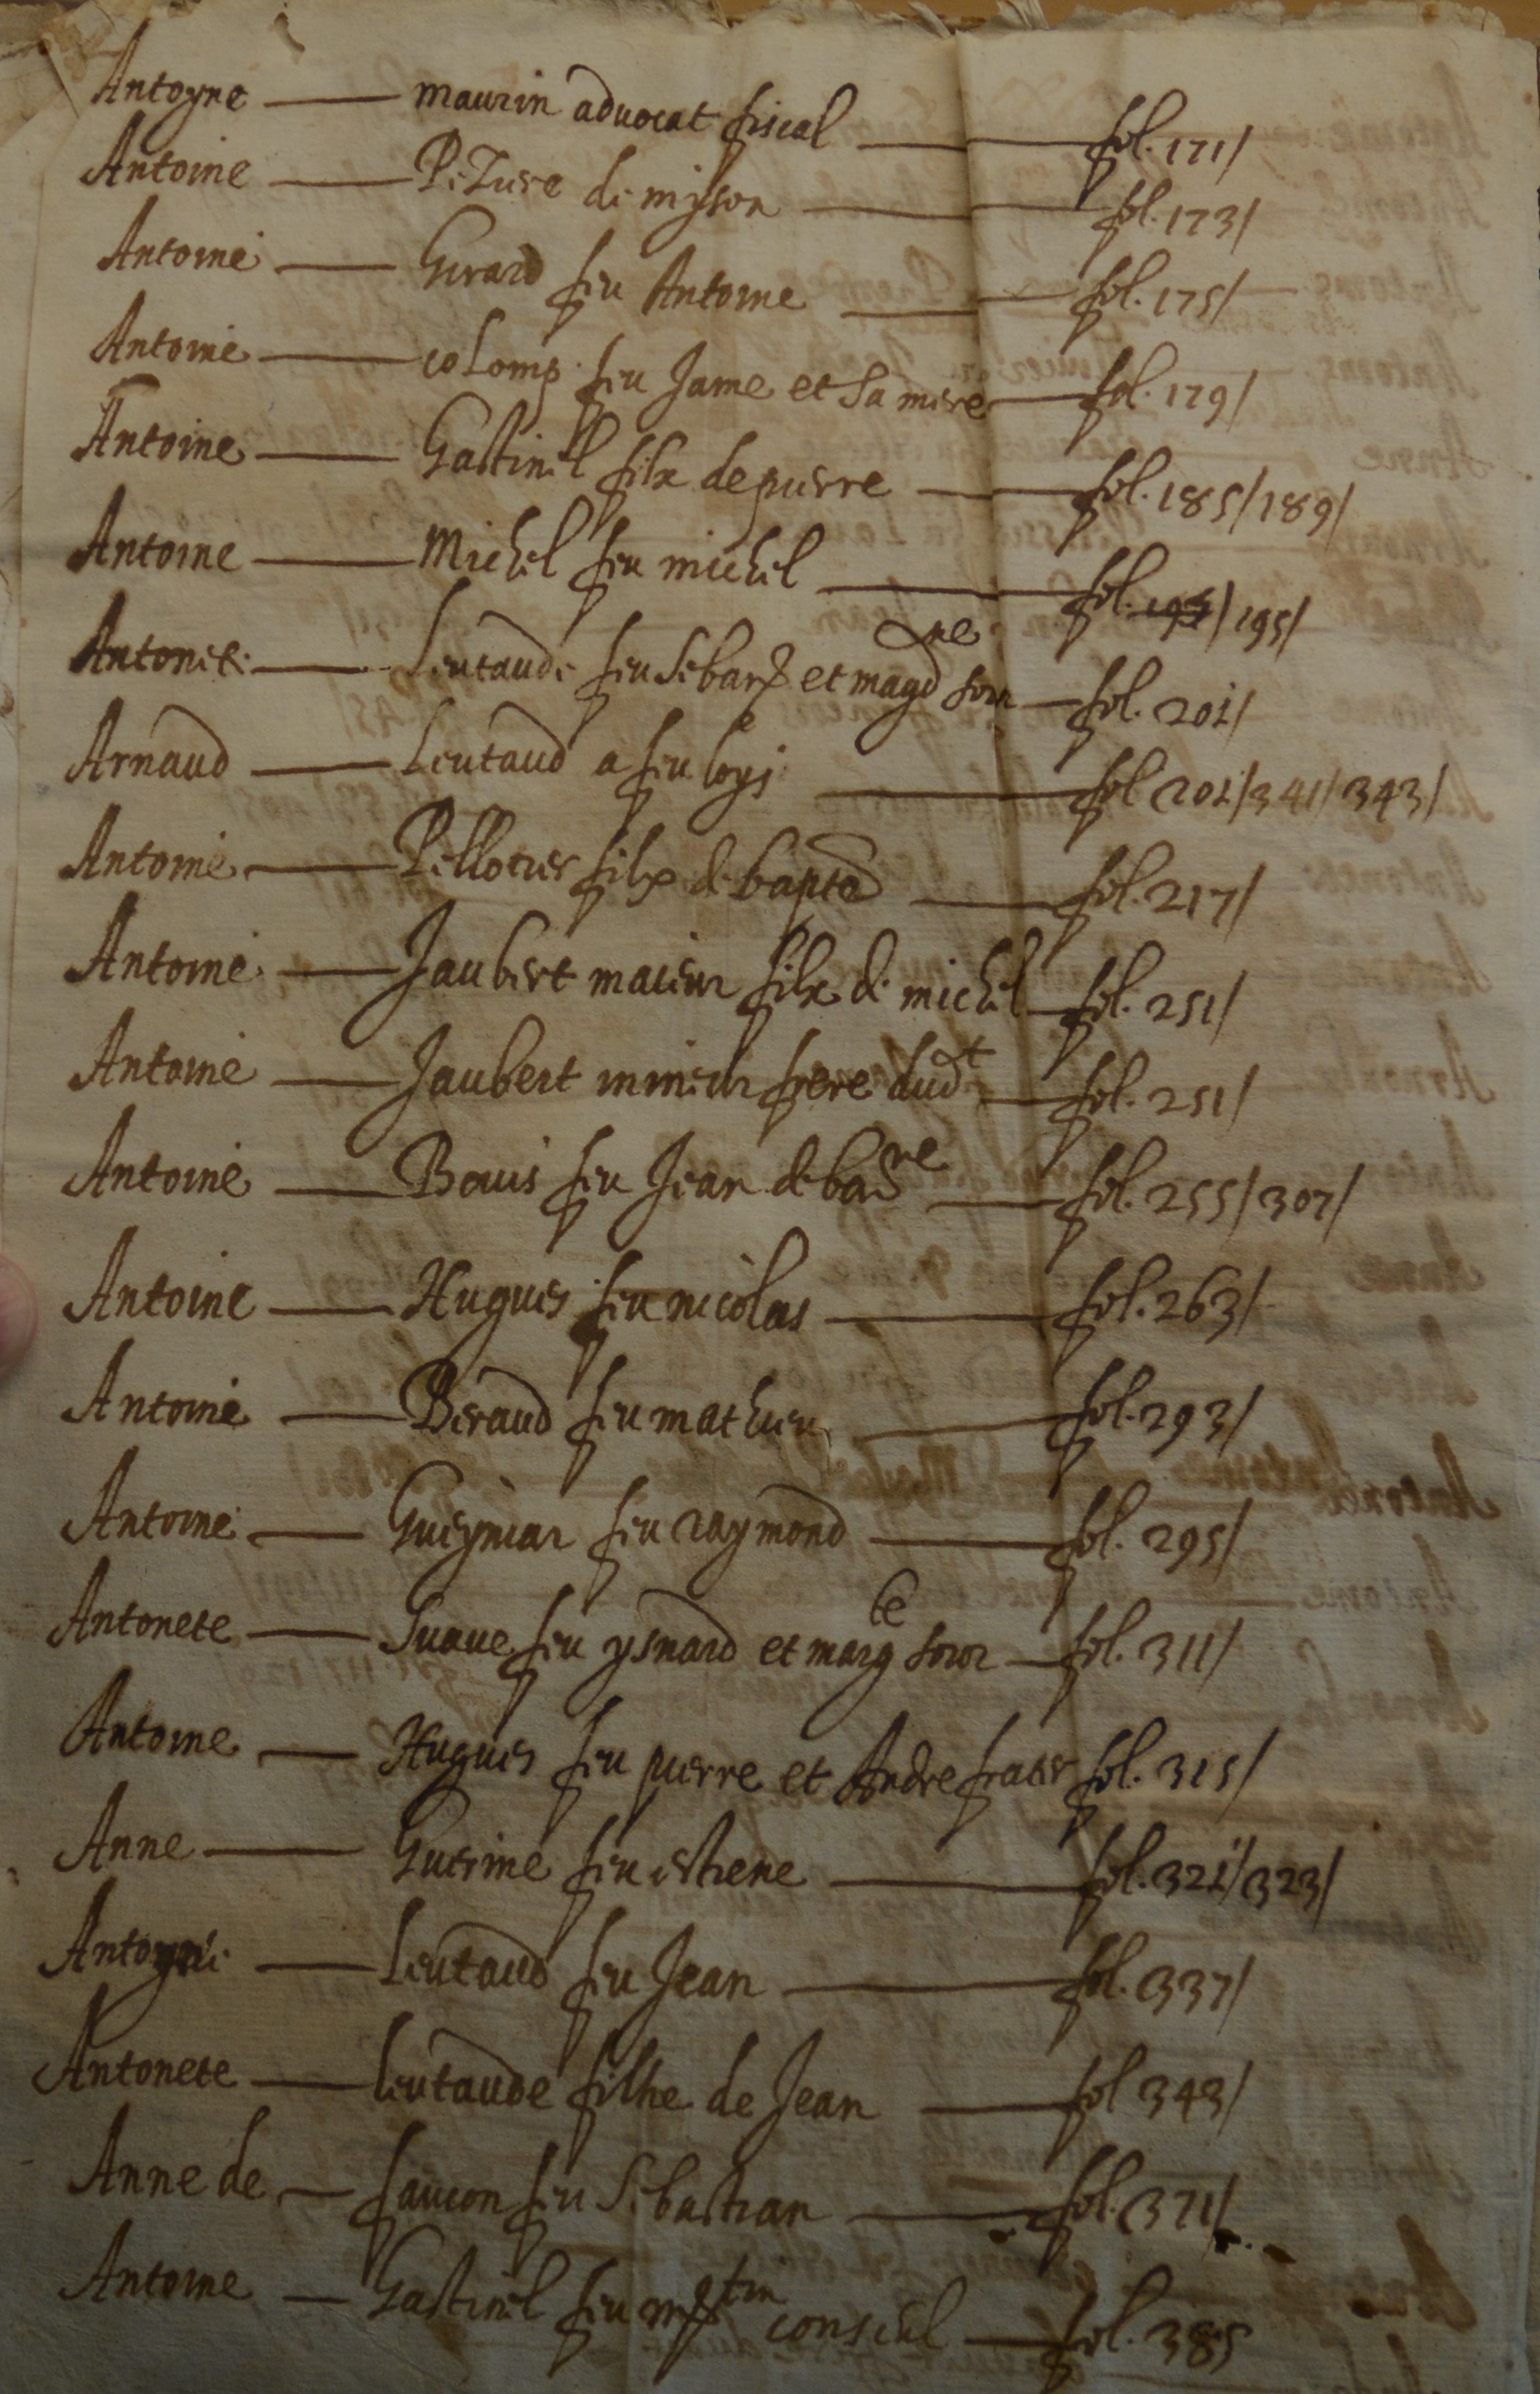 Antoyne — maurin advocat fiscal — fol. 171/
Antoine — de myson — fol. 173/
Antoine — Girard feu Antoine — fol. 175/
Antoine — colomp feu Jame et sa mere — fol. 179/
Antoine — Gastinel filx de pierre — fol. 185/189/
Antoine — Michel feu michel — fol. 195/
Antonete — Leutaude feu et magd ne seur — fol. 201/
Arnaud — Leutaud a feu loys — fol 201/341/343/
Antoine — Pellotier filx de bapte — fol. 217/
Antoine — Jaubert maieur filx de michel — fol. 251/
Antoine — Jaubert mineur frere dudt — fol. 251/
Antoine — Bouis feu Jean de — fol. 255/307/
Antoine — Hugues feu nicolas — fol. 263/
Antoine — Beraud feu mathieu — fol. 293/
Antoine — Gueymar feu raymond — fol. 295/
Antonete — Suave feu ysnard et marg te seur — fol. 311/
Antoine — Hugues feu pierre et Andre frater fol. 315/
Anne — Guerine feu estiene — fol. 321/323/
Antoyne — Leutaud feu Jean — fol. 337/
Antonete — leutaude filhe de Jean — fol 343/
Anne de — faucon feu Sebastian — fol. 371/
Antoine — Gastinel feu conseul — fol. 385